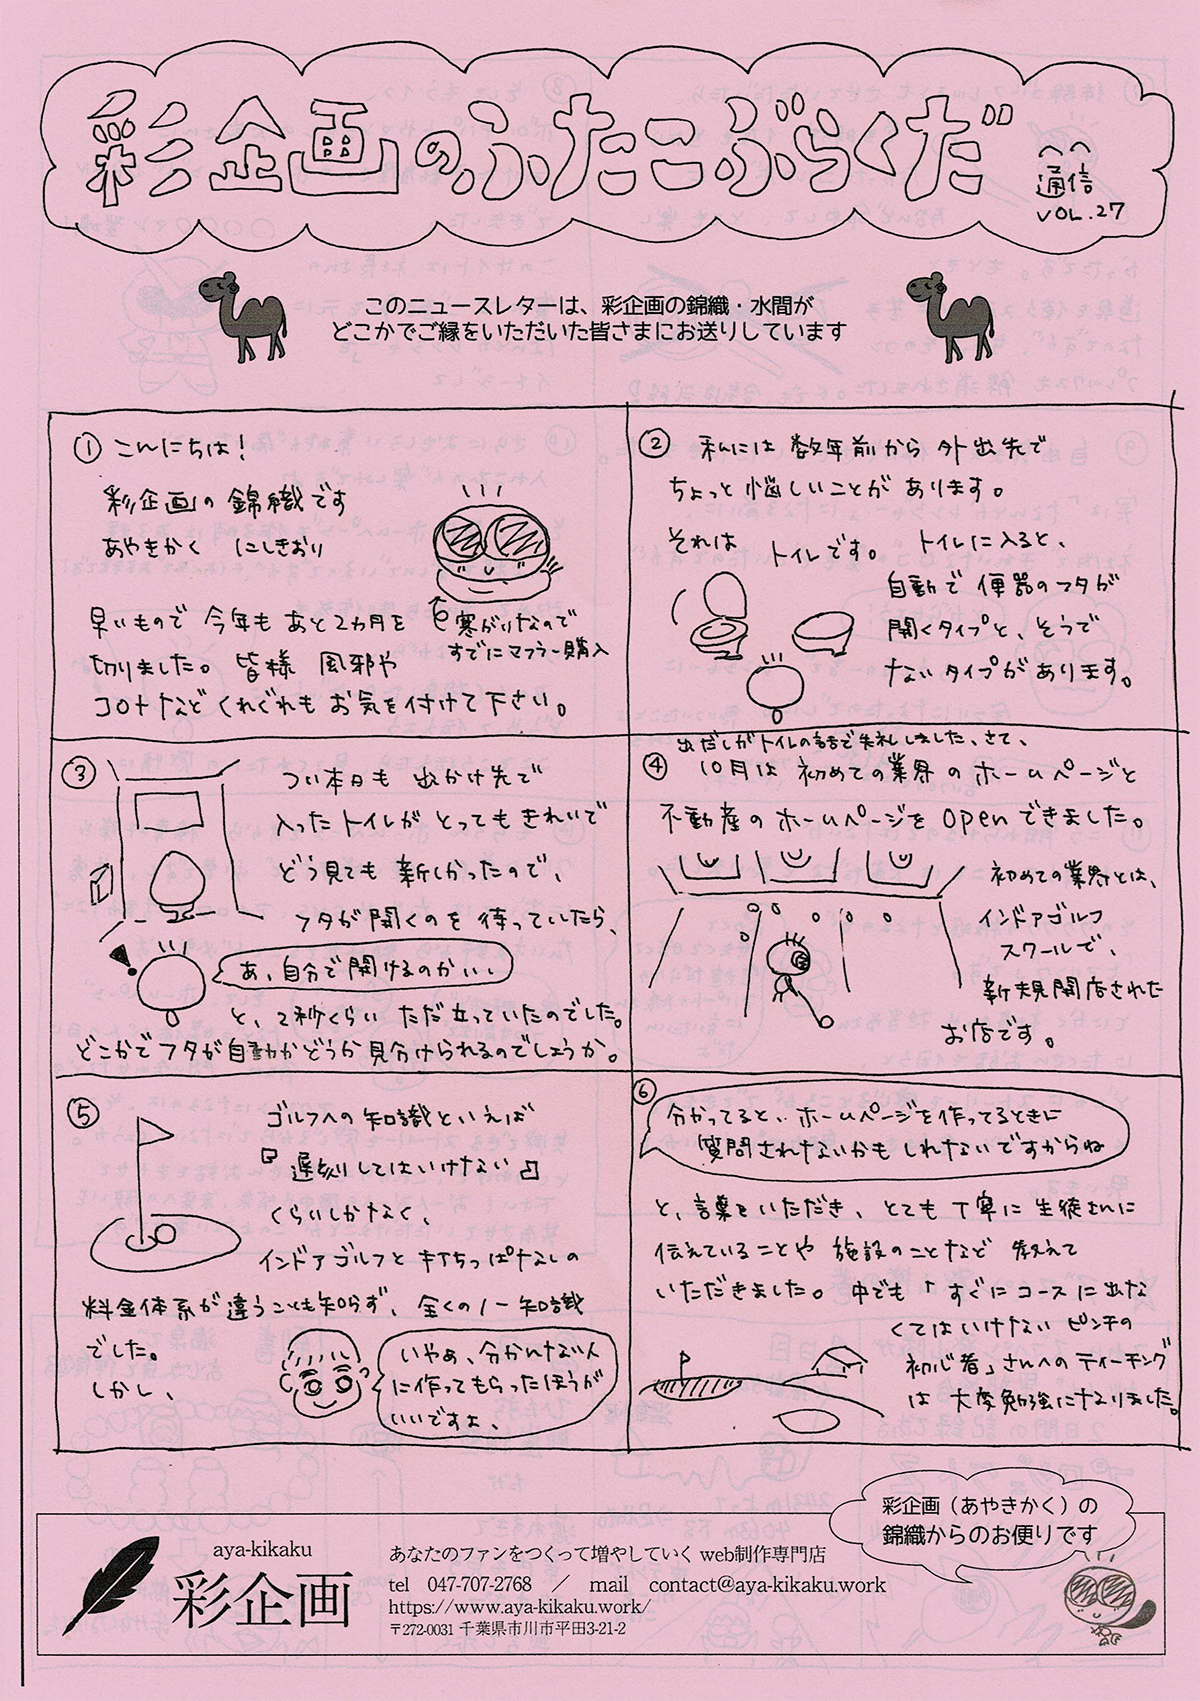 彩企画のふたこぶらくだ
通信
VOL.27
このニュースレターは、彩企画の錦織・水間が
どこかでご縁をいただいた皆さまにお送りしています
① こんにちは！
彩企画の錦織です
あやきかく にしきおり
早いもので 今年も あと2カ月を
切りました。皆様 風邪や
コロナなど くれぐれも お気を付けて下さい。
寒がりなので
すでにマフラー購入
② 私には 数年前から 外出先で
ちょっと悩しいことが あります。
それは トイレです。 トイレに入ると、
自動で 便器のフタが
開くタイプと、そうで
ないタイプがあります。
③ つい本日も 出かけ先で
入ったトイレが とってもきれいで
どう見ても 新しかったので、
フタが開くのを 待っていたら、
あ、自分で開けるのかい、
と、2秒くらい ただ立っていたのでした。
どこかでフタが自動かどうか見分けられるのでしょうか。
出だしがトイレの話で失礼しました、さて、
④ 10月は 初めての業界の ホームページと
不動産のホームページを Openできました。
初めての業界とは、
インドアゴルフ
スクールで、
新規開店された
お店です。
⑤ ゴルフへの知識といえば
『遅刻してはいけない』
くらいしかなく、
インドアゴルフと 打ちっぱなしの
料金体系が違うことも知らず、全くのノー知識
でした。
しかし、
いやぁ、分かんない人
に作ってもらったほうが
いいですよ、
⑥ 分かってると、ホームページを作ってるときに
質問されないかも しれないですからね
と、言葉をいただき、とても丁寧に生徒さんに
伝えていることや 施設のことなど 教えて
いただきました。中でも「すぐにコースに出な
くてはいけない ピンチの
初心者」さんへのティーチング
は 大変勉強になりました。
彩企画（あやきかく）の
錦織からのお便りです
aya-kikaku
彩企画
あなたのファンをつくって増やしていく web制作専門店
tel 047-707-2768 ／ mail contact@aya-kikaku.work
https://www.aya-kikaku.work/
〒272-0031 千葉県市川市平田3-21-2